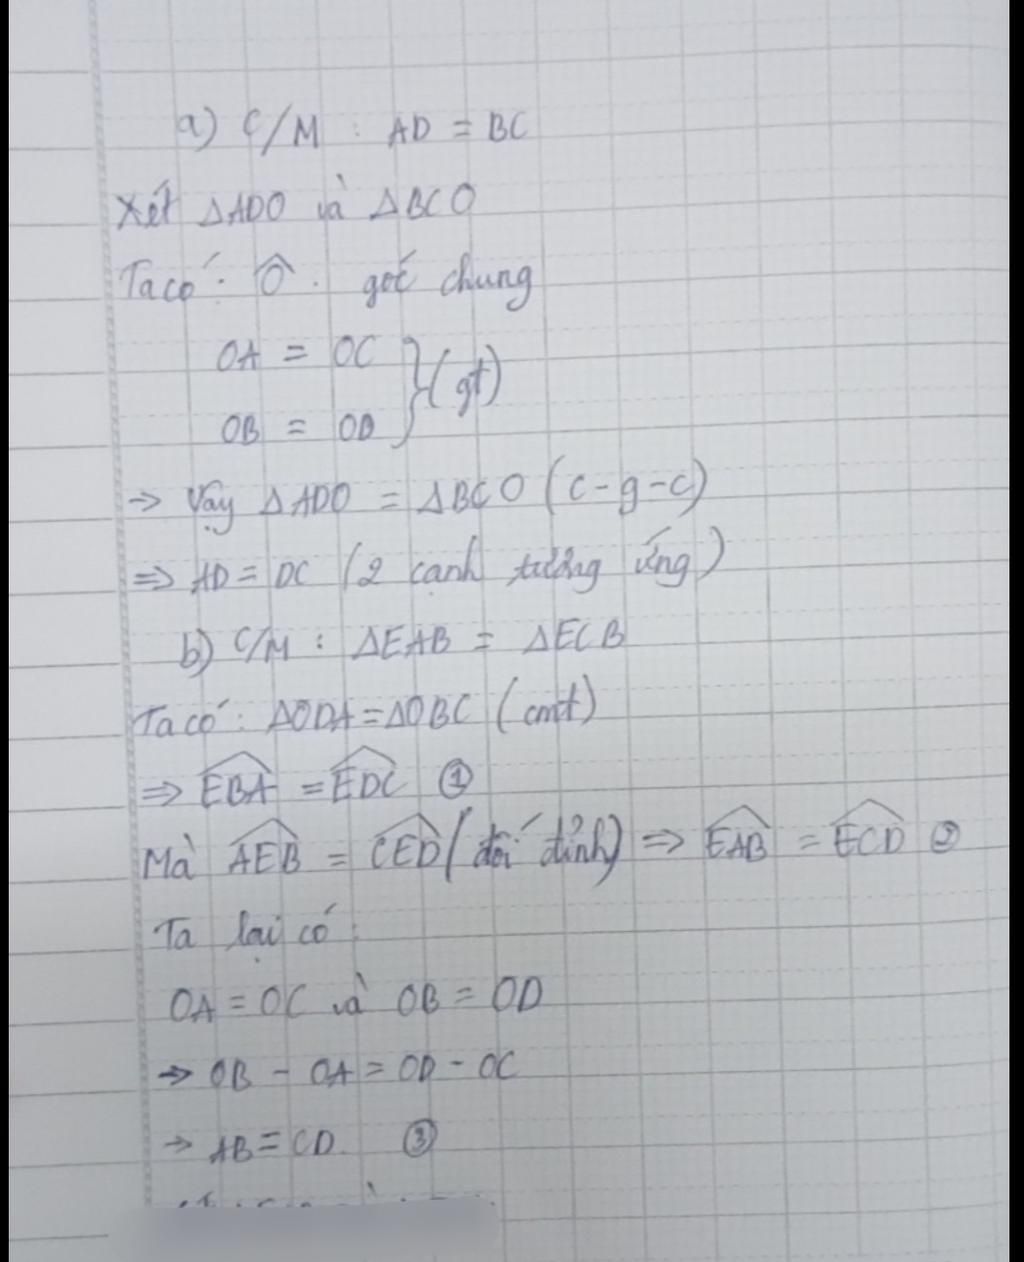 a) C/M : AD = BC
Xét ΔADO và ΔBCO
Ta có: Ô: góc chung
OA = OC
OB = OD } (gt)
⇒ Vậy ΔADO = ΔBCO (c-g-c)
⇒ AD = DC (2 cạnh tương ứng)
b) C/M : ΔEAB = ΔECB
Ta có: ΔODA = ΔOBC (cmt)
⇒ \widehat{EBA} = \widehat{EDC} ①
Mà \widehat{AEB} = \widehat{CED} (đối đỉnh) ⇒ \widehat{EAB} = \widehat{ECD} ②
Ta lại có:
OA = OC và OB = OD
⇒ OB - OA = OD - OC
→ AB = CD. ③